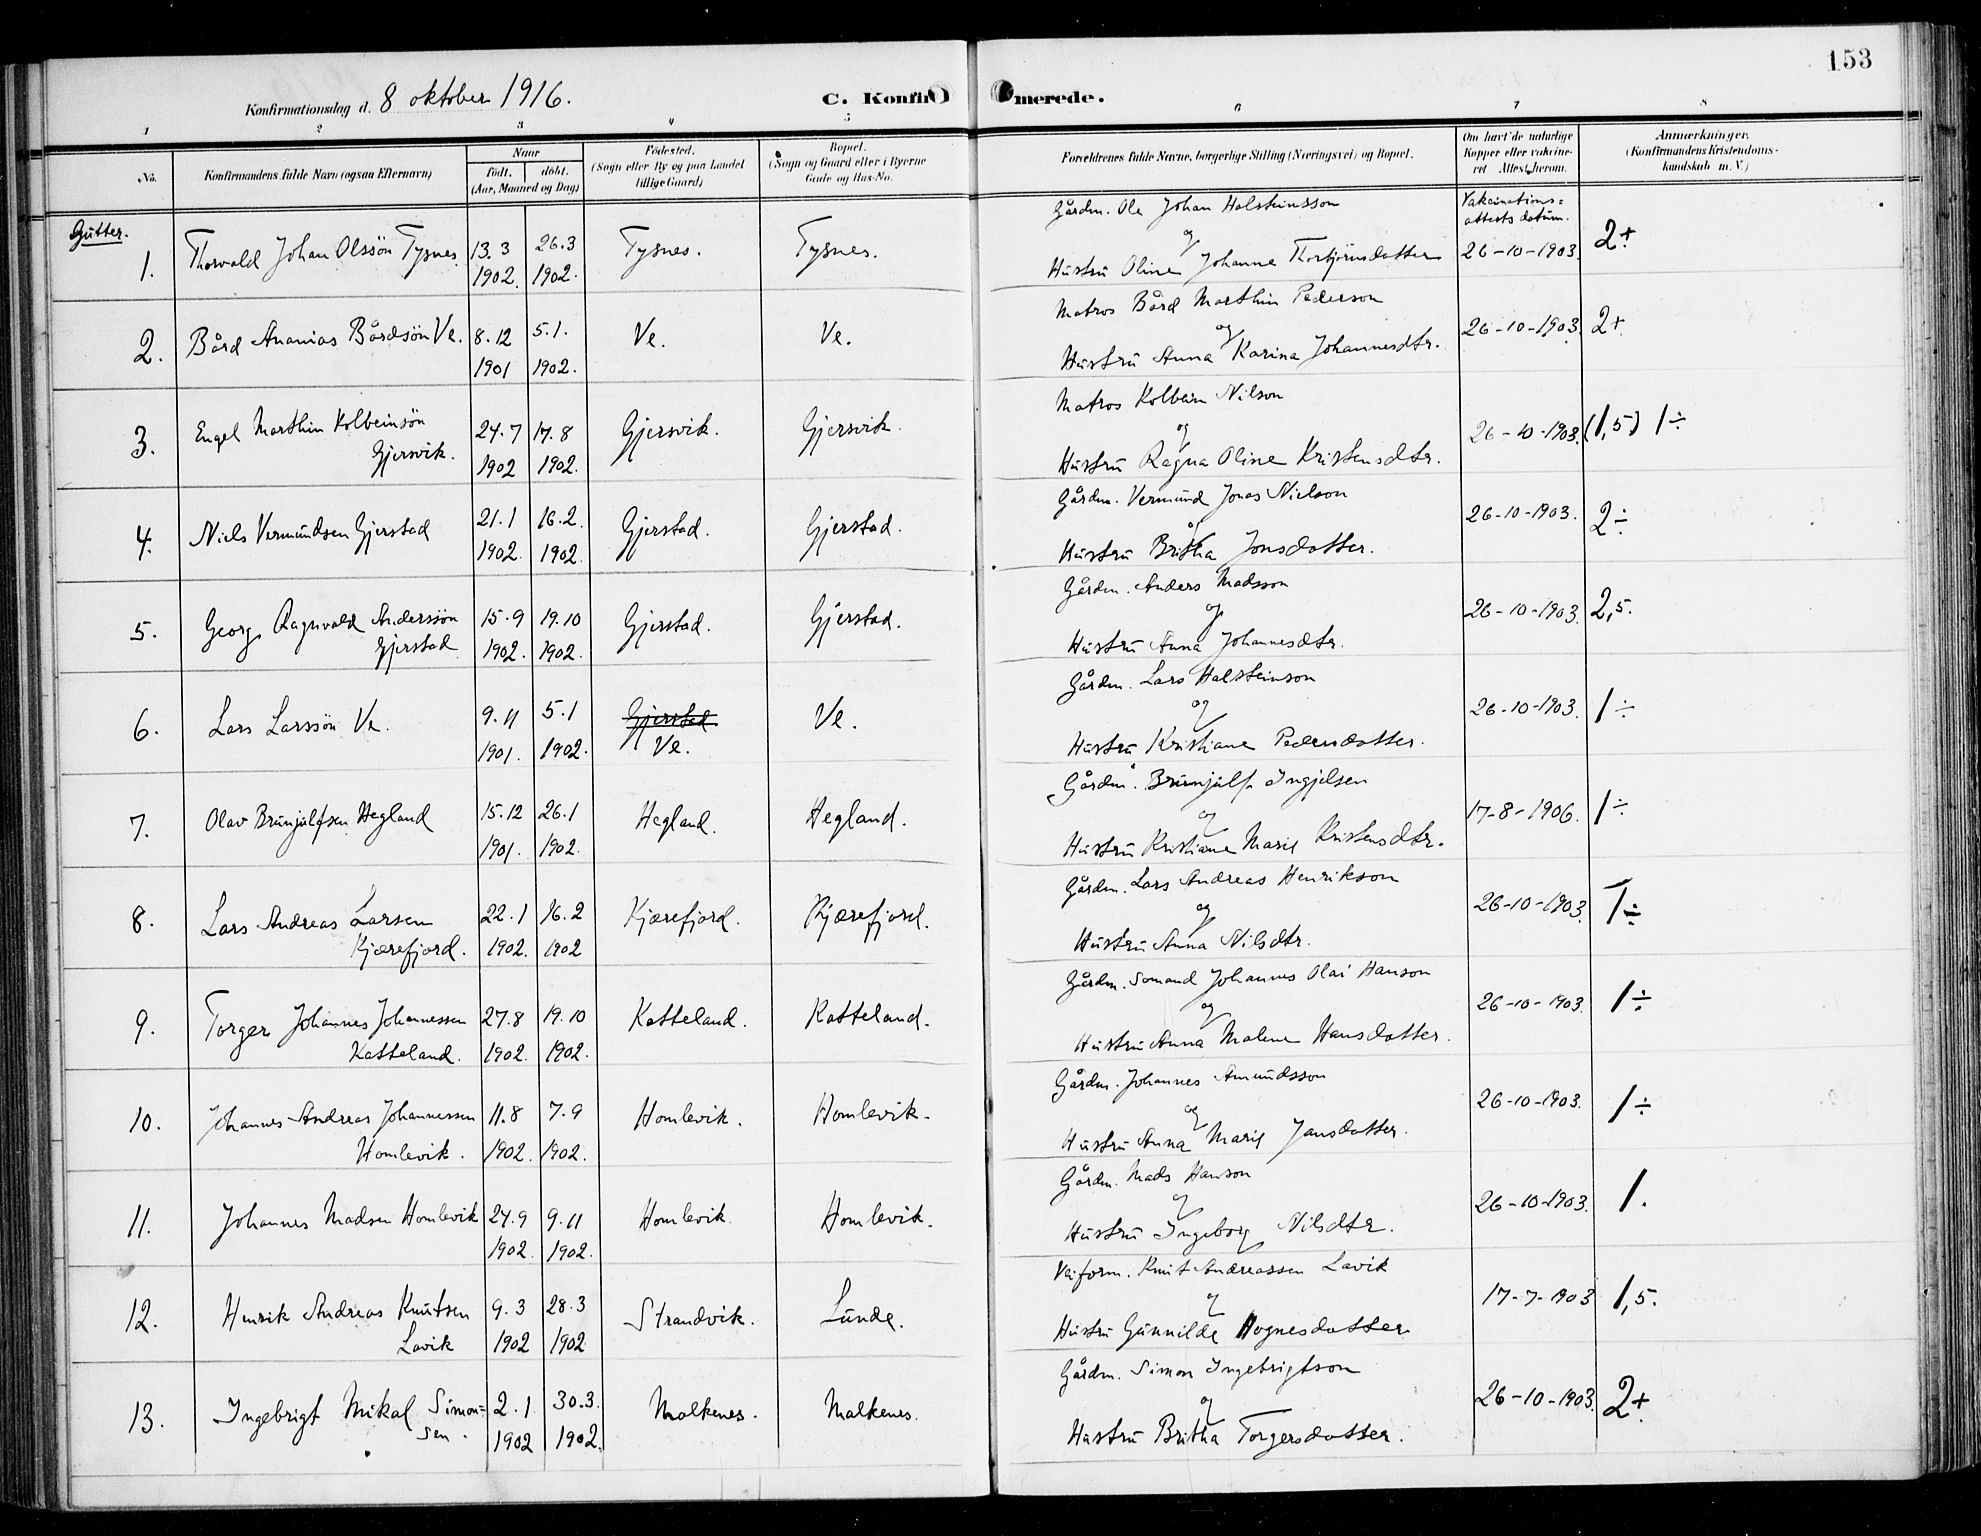 153
Konfirmationsdag d. 8 oktober 1916. C. Konfirmerede.
1 2 3 4 5 6 7 8
No. Konfirmandens fulde Navn (ogsaa Efternavn) Naar født. døbt. (Aar, Maaned og Dag) Fødested. (Sogn eller By og paa Landet tillige Gaard) Bopæl. (Sogn og Gaard eller i Byerne Gade og Hus-No. Forældrenes fulde Navne, borgerlige Stilling (Næringsvei) og Bopæl. Om havt de naturlige Kopper eller vakcineret Attest herom. Anmærkninger. (Konfirmandens Kristendomskundskab m. V.)
Gutter.
Vakcinations=
attests datum.
Gårdm. Ole Johan Halsteinsson
1. Thorvald Johan Olssön Tysnes. 13.3 26.3 Tysnes. Tysnes. og 26-10-1903. 2+
1902. 1902. Hustru Oline Johanne Thorbjörnsdatter
Matros Bård Marthin Pederson
2. Bård Ananias Bårdsön Ve. 8.12 5.1. Ve. Ve. og 26-10-1903. 2+
1901 1902. Hustru Anna Karina Johannesdtr.
Matros Kolbein Nilson
3. Engel Marthin Kolbeinsön 24.7 17.8 Gjersvik. Gjersvik. og 26-10-1903. (1,5) 1÷
Gjersvik. 1902 1902. Hustru Ragna Oline Kristensdtr.
Gårdm. Vermund Jonas Nielson
4. Niels Vermundsen Gjerstad 21.1 16.2. Gjerstad. Gjerstad. og 26-10-1903. 2÷
1902. 1902. Hustru Britha Jonsdatter.
Gårdm. Anders Madsson
5. Georg Ragnvald Anderssön 15.9 19.10 Gjerstad. Gjerstad. og 26-10-1903. 2,5.
Gjerstad 1902. 1902. Hustru Anna Johannesdtr.
Gårdm. Lars Halsteinson
6. Lars Larssön Ve. 9.11 5.1 Gjerstad. Ve. og 26-10-1903. 1÷
1901. 1902. Ve. Hustru Kristiane Pedersdatter.
Gårdm. Brunjulf Ingjelsen
7. Olav Brunjulfsen Hegland 15.12 26.1 Hegland. Hegland. og 17-8-1906. 1÷
1901. 1902. Hustru Kristiane Marie Kristensdtr.
Gårdm. Lars Andreas Henrikson
8. Lars Andreas Larsen 22.1 16.2 Kjærefjord. Kjærefjord. og 26-10-1903. 1÷
Kjærefjord. 1902. 1902 Hustru Anna Nilsdtr.
Gårdm. Somand Johannes Olai Hanson
9. Torger Johannes Johannessen 27.8 19.10 Katteland. Katteland. og 26-10-1903. 1÷
Katteland. 1902. 1902. Hustru Anna Malene Hansdatter.
Gårdm. Johannes Amundsson
10. Johannes Andreas Johannessen 11.8 7.9 Homlevik. Homlevik. og 26-10-1903. 1÷
Homlevik. 1902. 1902. Hustru Anna Marie Jansdatter.
Gårdm. Mads Hanson
11. Johannes Madsen Homlevik 24.9 9.11 Homlevik. Homlevik. og 26-10-1903. 1.
1902. 1902. Hustru Ingeborg Nilsdtr.
Veiform. Knut Andreassen Lavik
12. Henrik Andreas Knutsen 9.3 28.3 Strandvik. Lunde. og 17-7-1903 1,5.
Lavik 1902 1902 Hustru Gunnilde Hognesdatter
Gårdm. Simon Ingebrigtson
13. Ingebrigt Mikal Simon= 2.1 30.3. Malkenes. Malkenes. og 26-10-1903. 2+.
sen. 1902 1902. Hustru Britha Torgersdatter.